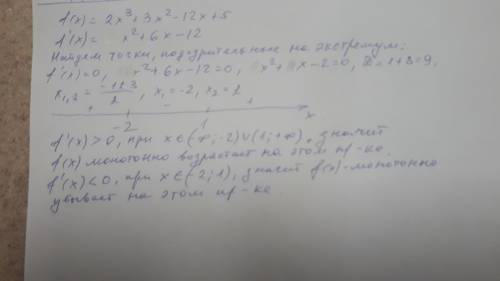 f(x) = 2x³+3x²-12x+5
f'(x) = x²+6x-12
Найдем точки, подозрительные на экстремум:
f'(x)=0, x²+6x-12=0, x²+ x-2=0, D=1+8=9,
x₁,₂ = -1±3/2, x₁=-2, x₂=1
+ - + x
-2 1
f'(x)>0, при x∈(-∞;-2)∪(1;+∞), значит
f(x) монотонно возрастает на этом пр-ке.
f'(x)<0, при x∈(-2;1), значит f(x)-монотонно
убывает на этом пр-ке